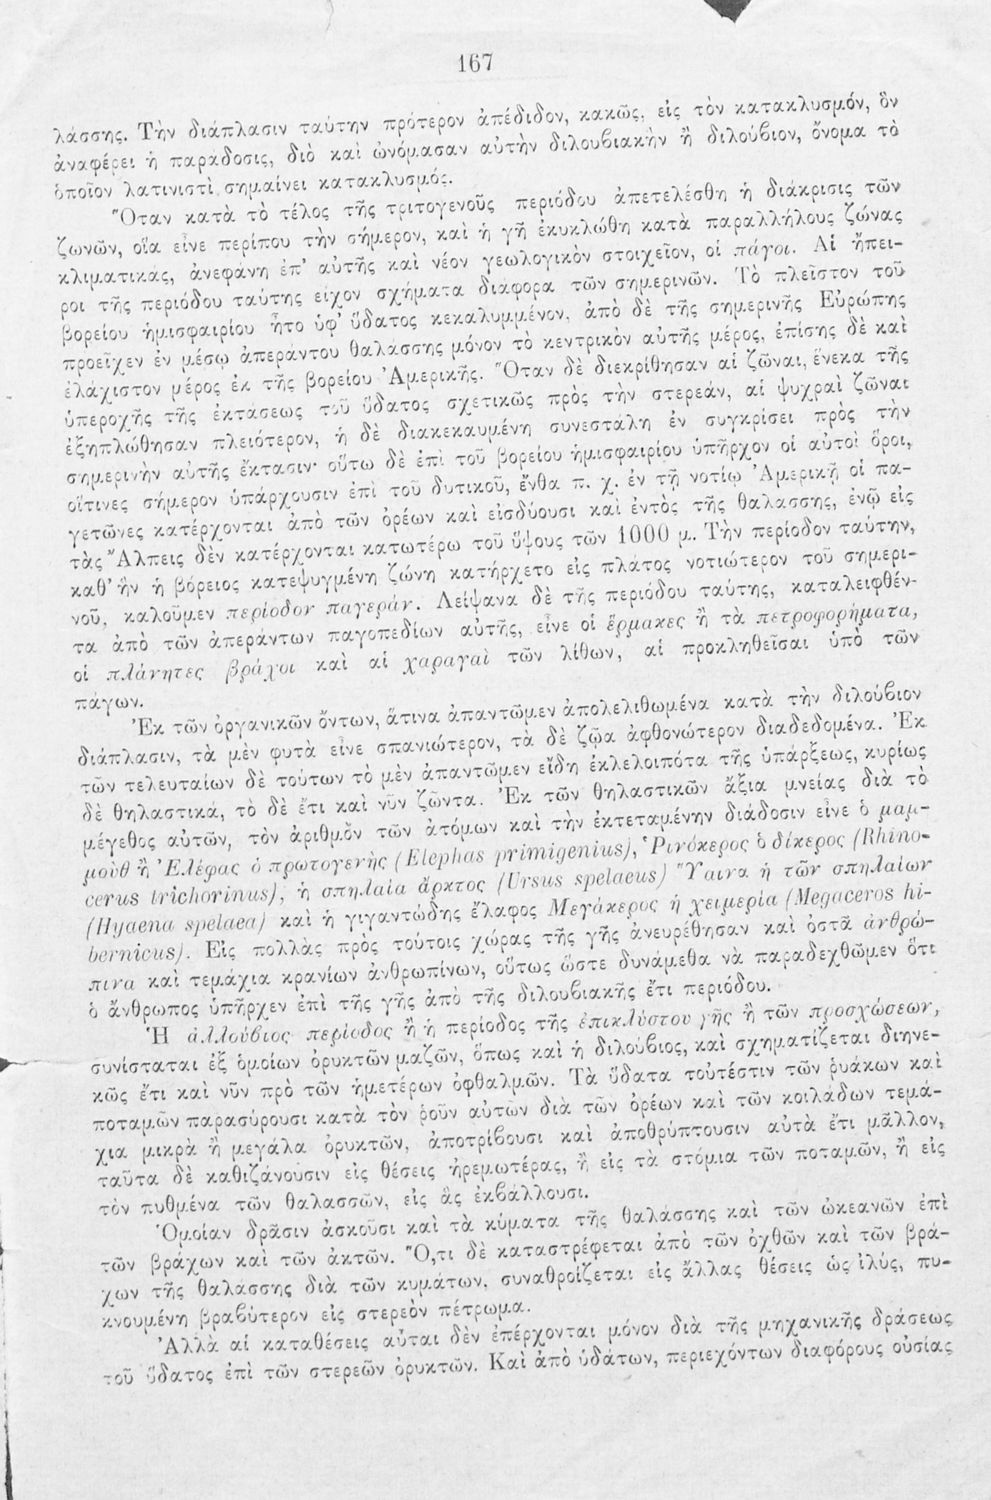 167
λάσσης. Τὴν διάπλασιν ταύτην πρότερον ἀπέδιδον, κακῶς, εἰς τὸν κατακλυσμόν, ὃν
ἀναφέρει ἡ παράδοσις, διὸ καὶ ὠνόμασαν αὐτὴν διλουβιακὴν ἢ διλούβιον, ὄνομα τὸ
ὁποῖον λατινιστὶ σημαίνει κατακλυσμός.
Ὅταν κατὰ τὸ τέλος τῆς τριτογενοῦς περιόδου ἀπετελέσθη ἡ διάκρισις τῶν
ζωνῶν, οἵα εἶνε περίπου τὴν σήμερον, καὶ ἡ γῆ ἐκυκλώθη κατὰ παραλλήλους ζώνας
κλιματικάς, ἀνεφάνη ἐπ' αὐτῆς καὶ νέον γεωλογικὸν στοιχεῖον, οἱ πάγοι. Αἱ ἤπει-
ροι τῆς περιόδου ταύτης εἶχον σχήματα διάφορα τῶν σημερινῶν. Τὸ πλεῖστον τοῦ
βορείου ἡμισφαιρίου ἦτο ὑφ' ὕδατος κεκαλυμμένον, ἀπὸ δὲ τῆς σημερινῆς Εὐρώπης
προεῖχεν ἐν μέσῳ ἀπεράντου θαλάσσης μόνον τὸ κεντρικὸν αὐτῆς μέρος, ἐπίσης δὲ καὶ
ἐλάχιστον μέρος ἐκ τῆς βορείου Ἀμερικῆς. Ὅταν δὲ διεκρίθησαν αἱ ζῶναι, ἕνεκα τῆς
ὑπεροχῆς τῆς ἐκτάσεως τοῦ ὕδατος σχετικῶς πρὸς τὴν στερεάν, αἱ ψυχραὶ ζῶναι
ἐξηπλώθησαν πλειότερον, ἡ δὲ διακεκαυμένη συνεστάλη ἐν συγκρίσει πρὸς τὴν
σημερινὴν αὐτῆς ἔκτασιν· οὕτω δὲ ἐπὶ τοῦ βορείου ἡμισφαιρίου ὑπῆρχον οἱ αὐτοὶ ὅροι,
οἵτινες σήμερον ὑπάρχουσιν ἐπὶ τοῦ δυτικοῦ, ἔνθα π. χ. ἐν τῇ νοτίῳ Ἀμερικῇ οἱ πα-
γετῶνες κατέρχονται ἀπὸ τῶν ὀρέων καὶ εἰσδύουσι καὶ ἐντὸς τῆς θαλάσσης, ἐνῷ εἰς
τὰς Ἄλπεις δὲν κατέρχονται κατωτέρω τοῦ ὕψους τῶν 1000 μ. Τὴν περίοδον ταύτην,
καθ' ἣν ἡ βόρειος κατεψυγμένη ζώνη κατήρχετο εἰς πλάτος νοτιώτερον τοῦ σημερι-
νοῦ, καλοῦμεν περίοδον παγεράν. Λείψανα δὲ τῆς περιόδου ταύτης, καταλειφθέν-
τα ἀπὸ τῶν ἀπεράντων παγοπεδίων αὐτῆς, εἶνε οἱ ἕρμακες ἢ τὰ πετροφορήματα,
οἱ πλάνητες βράχοι καὶ αἱ χαραγαὶ τῶν λίθων, αἱ προκληθεῖσαι ὑπὸ τῶν
πάγων.
Ἐκ τῶν ὀργανικῶν ὄντων, ἅτινα ἀπαντῶμεν ἀπολελιθωμένα κατὰ τὴν διλούβιον
διάπλασιν, τὰ μὲν φυτὰ εἶνε σπανιώτερον, τὰ δὲ ζῷα ἀφθονώτερον διαδεδομένα. Ἐκ
τῶν τελευταίων δὲ τούτων τὸ μὲν ἀπαντῶμεν εἴδη ἐκλελοιπότα τῆς ὑπάρξεως, κυρίως
δὲ θηλαστικά, τὸ δὲ ἔτι καὶ νῦν ζῶντα. Ἐκ τῶν θηλαστικῶν ἄξια μνείας διὰ τὸ
μέγεθος αὐτῶν, τὸν ἀριθμὸν τῶν ἀτόμων καὶ τὴν ἐκτεταμένην διάδοσιν εἶνε ὁ μαμ-
μοὺθ ἢ Ἐλέφας ὁ πρωτογενὴς (Elephas primigenius), Ῥινόκερος ὁ δίκερος (Rhino-
cerus trichorinus), ἡ σπηλαία ἄρκτος (Ursus spelaeus) Ὕαινα ἡ τῶν σπηλαίων
(Hyaena spelaea) καὶ ἡ γιγαντώδης ἔλαφος Μεγάκερος ἡ χειμερία (Megaceros hi-
bernicus). Εἰς πολλὰς πρὸς τούτοις χώρας τῆς γῆς ἀνευρέθησαν καὶ ὀστᾶ ἀνθρώ-
πινα καὶ τεμάχια κρανίων ἀνθρωπίνων, οὕτως ὥστε δυνάμεθα νὰ παραδεχθῶμεν ὅτι
ὁ ἄνθρωπος ὑπῆρχεν ἐπὶ τῆς γῆς ἀπὸ τῆς διλουβιακῆς ἔτι περιόδου.
Ἡ ἀλλούβιος περίοδος ἢ ἡ περίοδος τῆς ἐπικλύστου γῆς ἢ τῶν προσχώσεων,
συνίσταται ἐξ ὁμοίων ὀρυκτῶν μαζῶν, ὅπως καὶ ἡ διλούβιος, καὶ σχηματίζεται διηνε-
κῶς ἔτι καὶ νῦν πρὸ τῶν ἡμετέρων ὀφθαλμῶν. Τὰ ὕδατα τοὐτέστιν τῶν ῥυάκων καὶ
ποταμῶν παρασύρουσι κατὰ τὸν ῥοῦν αὐτῶν διὰ τῶν ὀρέων καὶ τῶν κοιλάδων τεμά-
χια μικρὰ ἢ μεγάλα ὀρυκτῶν, ἀποτρίβουσι καὶ ἀποθρύπτουσιν αὐτὰ ἔτι μᾶλλον,
ταῦτα δὲ καθιζάνουσιν εἰς θέσεις ἠρεμωτέρας, ἢ εἰς τὰ στόμια τῶν ποταμῶν, ἢ εἰς
τὸν πυθμένα τῶν θαλασσῶν, εἰς ἃς ἐκβάλλουσι.
Ὁμοίαν δρᾶσιν ἀσκοῦσι καὶ τὰ κύματα τῆς θαλάσσης καὶ τῶν ὠκεανῶν ἐπὶ
τῶν βράχων καὶ τῶν ἀκτῶν. Ὅ,τι δὲ καταστρέφεται ἀπὸ τῶν ὀχθῶν καὶ τῶν βρά-
χων τῆς θαλάσσης διὰ τῶν κυμάτων, συναθροίζεται εἰς ἄλλας θέσεις ὡς ἰλύς, πυ-
κνουμένη βραβύτερον εἰς στερεὸν πέτρωμα.
Ἀλλὰ αἱ καταθέσεις αὗται δὲν ἐπέρχονται μόνον διὰ τῆς μηχανικῆς δράσεως
τοῦ ὕδατος ἐπὶ τῶν στερεῶν ὀρυκτῶν. Καὶ ἀπὸ ὑδάτων, περιεχόντων διαφόρους οὐσίας